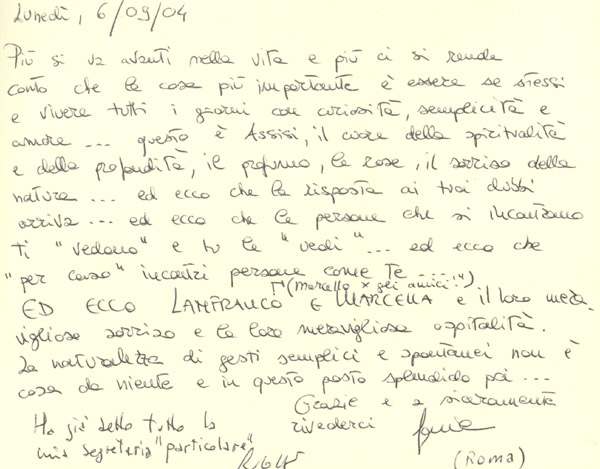 Lunedì, 6/09/04
Più si va avanti nella vita e più ci si rende
conto che la cosa più importante è essere se stessi
e vivere tutti i giorni con curiosità, semplicità e
amore ... questo è Assisi, il cuore della spiritualità
e della profondità, il profumo, le rose, il sorriso della
natura ... ed ecco che la risposta ai tuoi dubbi
arriva ... ed ecco che le persone che si incontrano
ti "vedono" e tu le "vedi" ... ed ecco che
"per caso" incontri persone come te ....
(Marcello x gli amici!")
ED ECCO LANFRANCO E MARCELLA e il loro mera
viglioso sorriso e la loro meravigliosa ospitalità.
La naturalezza di gesti semplici e spontanei non è
cosa da niente e in questo posto splendido poi ...
Grazie e a sicuramente
rivederci
Ha già detto tutto la
mia segretaria "particolare"
(Roma)